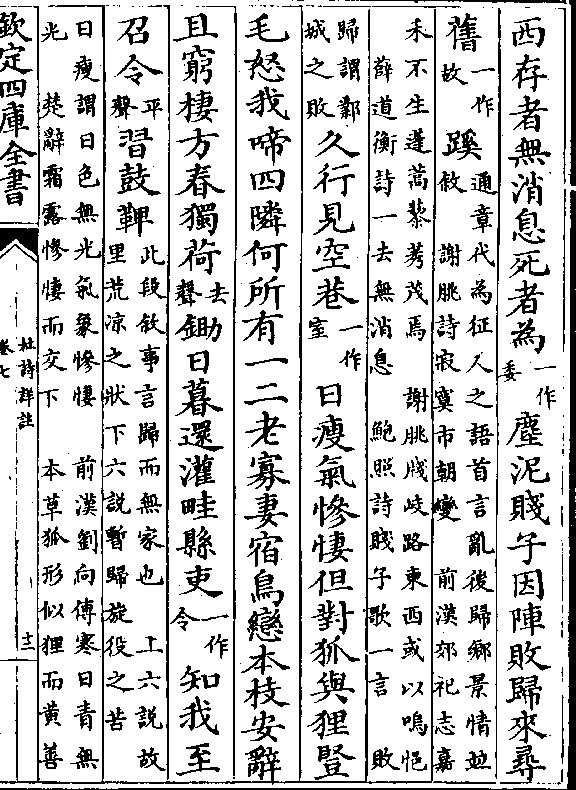 西存者無消息死者為一作委塵泥賤子因陣敗歸來尋
舊一作故蹊通章代為征人之語首言亂後歸鄉景情並
敘 謝朓詩寂寞市朝變 前漢郊祀志嘉
禾不生蓬蒿藜莠茂焉 謝朓牋岐路東西或以嗚悒
薛道衡詩一去無消息 鮑照詩賤子歌一言 敗
歸謂鄴城之敗久行見空巷一作室日瘦氣慘悽但對狐與狸豎
毛怒我啼四隣何所有一二老寡妻宿鳥戀本枝安辭
且窮棲方春獨荷去聲鋤日暮還灌畦縣吏一作令知我至
召令平聲習鼓鞞此段敘事言歸而無家也 上六說故
里荒涼之狀下六說暫歸旋役之苦
日瘦謂日色無光氣象慘悽 前漢劉向傳寒日青無
光 楚辭霜露慘悽而交下 本草狐形似狸而黃善
欽定四庫全書
杜詩詳註
卷七
十三